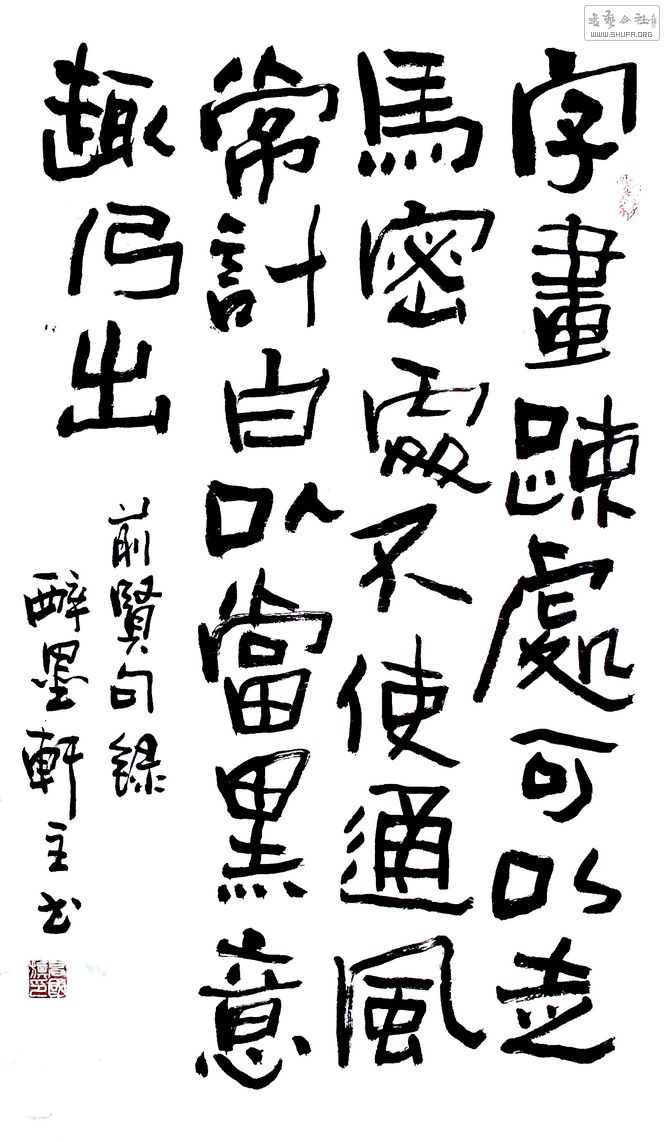 字畫踈處可以走
馬密處不使通風
常計白以當黑意
趣乃出
前賢句錄
醉墨軒主书
WWW.SHUFA.ORG